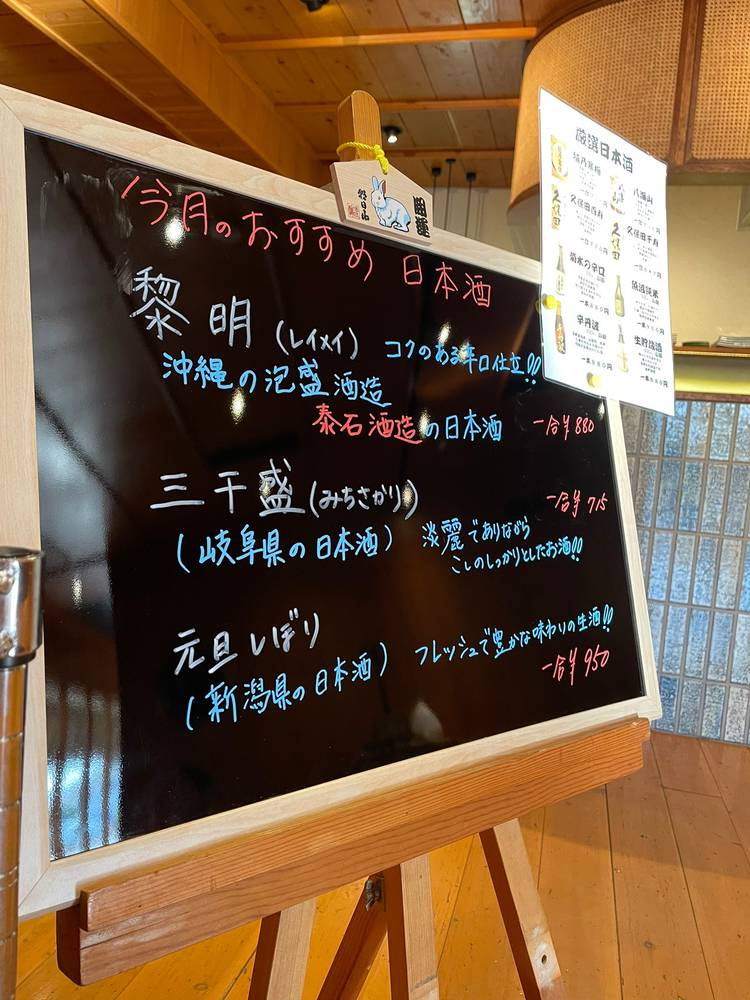 今月のおすすめ 日本酒
黎明 (レイメイ) コクのある辛口仕立!!
沖縄の泡盛酒造
泰石酒造の日本酒 一合¥880
三千盛(みちさかり) 一合¥715
(岐阜県の日本酒) 淡麗でありながら
こしのしっかりとしたお酒!!
元旦しぼり フレッシュで豊かな味わりの生酒!!
(新潟県の日本酒) 一合¥950
開運
厳選日本酒
八海山
久保田百寿 久保田千寿
菊水の辛口
辛丹波 生貯蔵酒